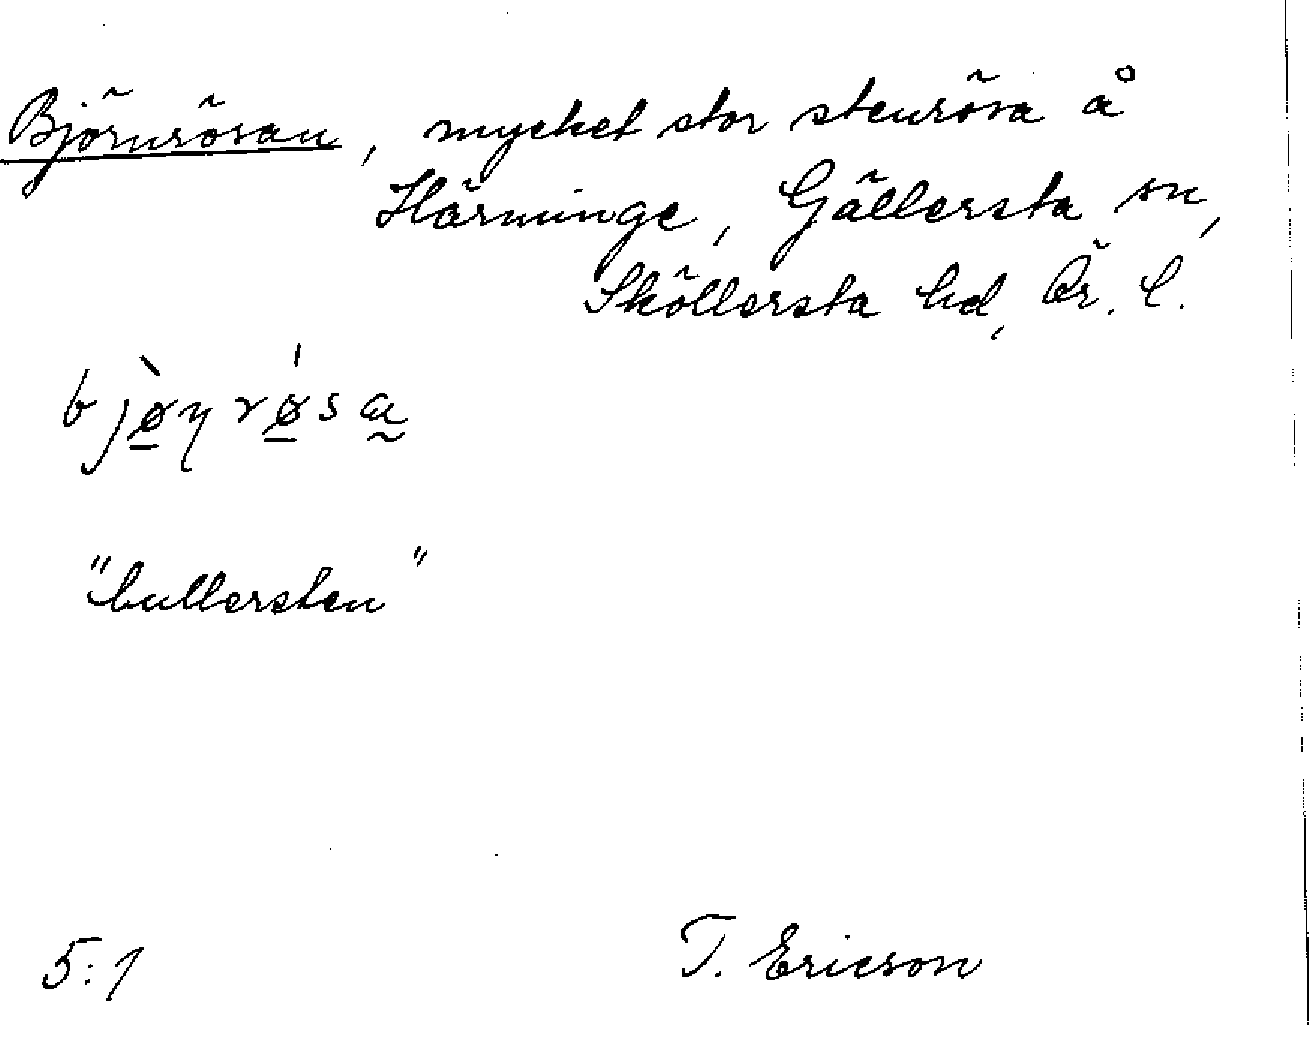 Björnrösan, mycket stor stenrösa å
Härminge, Gällersta sn,
Sköllersta hd, Ör. l.
bjø̀ṇrǿsa
"bullersten"
5:1 T. Ericson